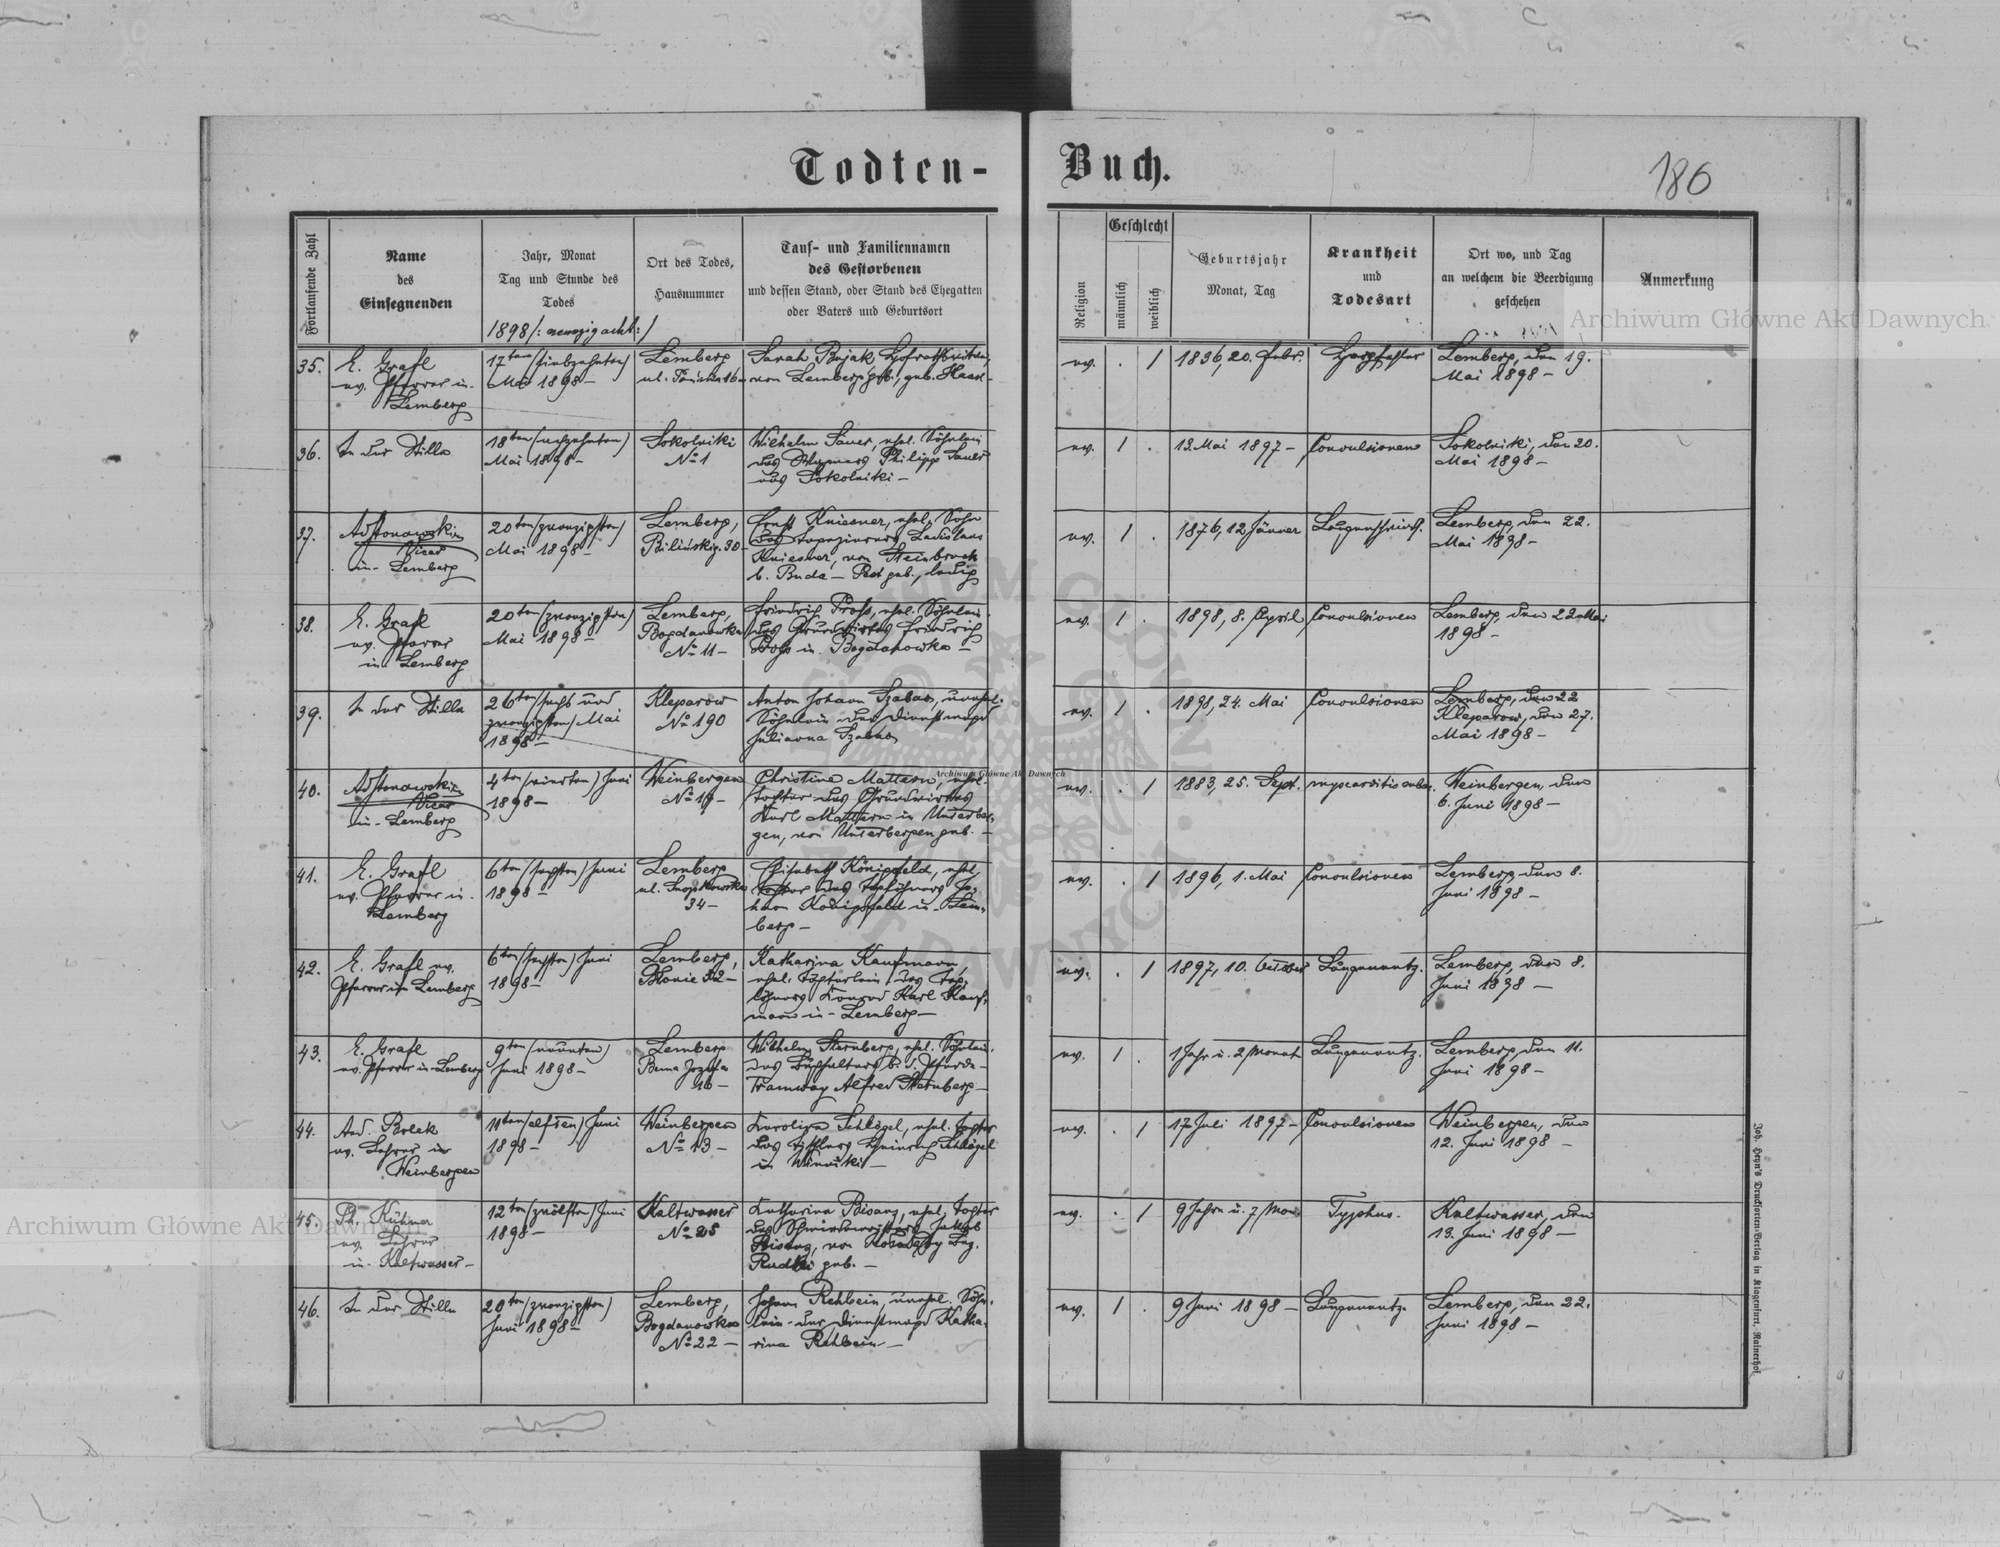 Todten-
Buch.
186
Fortlaufende Zahl
Name
des
Einsegnenden
Jahr, Monat
Tag und Stunde des
Todes
1898/: neunzigacht:/
Ort des Todes,
Hausnummer
Tauf- und Familiennamen
des Gestorbenen
und dessen Stand, oder Stand des Ehegatten
oder Vaters und Geburtsort
Religion
Geschlecht
männlich
weiblich
Geburtsjahr
Monat, Tag
Krankheit
und
Todesart
Ort wo, und Tag
an welchem die Beerdigung
geschehen
Anmerkung
Archiwum Główne Akt Dawnych
35.
E. Grafl
ev. Pfarrer in
Lemberg
17ten (siebzehnten)
Mai 1898 –
Lemberg
ul.
Sarah Bujak, Hofrathswitwe,
von Lemberg geb., geb.
ev. . 1
1836, 20. Febr.
Herzfehler
Lemberg, den 19.
Mai 1898 –
36.
In der Stille
18ten (achzehnten)
Mai 1898 –
Sokolniki
No 1
Wilhelm Sauer, ehel. Söhnlein
des Philipp Sauer
aus Sokolniki –
ev. 1 .
13. Mai 1897 –
Convulsionen
Sokolniki, den 20.
Mai 1898 –
37.
Adstonowski
Vicar
in Lemberg
20ten (zwanzigsten)
Mai 1898 –
Lemberg,
Bilińskig. 30 –
Ernst Kniesner, ehel. Sohn
des Tapezierers Ladislaus
Kniesner, von Steinbruch
b. Buda-Pest geb., ledig
ev. 1 .
1876, 12 Jänner
Lungenschwind.
Lemberg, den 22.
Mai 1898 –
38.
E. Grafl
ev. Pfarrer
in Lemberg
20ten (zwanzigsten)
Mai 1898 –
Lemberg,
Bogdanowka
No 11 –
Friedrich Prohs, ehel. Söhnlein
des Grundwirthes Friedrich
Prohs in Bogdanowka –
ev. 1 .
1898, 8. April
Convulsionen
Lemberg, den 22 Mai
1898 –
39.
In der Stille
26ten (sechs und
zwanzigsten) Mai
1898 –
Kleparow
No 190
Anton Johann Szabas, unehel.
Söhnlein der Dienstmagd
Julianna Szabas
ev. 1 .
1898, 24. Mai
Convulsionen
Lemberg, den 22
Kleparow, den 27.
Mai 1898 –
40.
Adstonowski
Vicar
in Lemberg
4ten (vierten) Juni
1898 –
Weinbergen
No 19 –
Christine Mattern, ehel.
Tochter des Grundwirthes
Karl Mattern in Unterber-
gen, von Unterbergen geb. –
ev. . 1
1883, 25. Sept.
myocarditis
Weinbergen, den
6. Juni 1898 –
41.
E. Grafl
ev. Pfarrer in
Lemberg
6ten (sechsten) Juni
1898 –
Lemberg
ul.
34 –
Elisabeth Königsfeld, ehel.
Tochter des Taglöhners Jo-
hann Königsfeld in Lem-
berg –
ev. . 1
1896, 1. Mai
Convulsionen
Lemberg, den 8.
Juni 1898 –
42.
E. Grafl ev.
Pfarrer in Lemberg
6ten (sechsten) Juni
1898 –
Lemberg,
Błonie 12 –
Katharina Kaufmann,
ehel. Töchterlein des Tag-
löhners Konrad Karl Kauf-
mann in Lemberg –
ev. . 1
1897, 10. October
Lungenentz.
Lemberg, den 8.
Juni 1898 –
43.
E. Grafl
ev. Pfarrer in Lemberg
9ten (neunten)
Juni 1898 –
Lemberg
Bema Josefa
16 –
Wilhelm Sternberg, ehel. Söhnlein
des Buchhalters b. d. Pferde-
Tramway Alfred Sternberg –
ev. 1 .
1 Jahr u. 2 Monate
Lungenentz.
Lemberg, den 11.
Juni 1898 –
44.
And. Brlek
ev. Lehrer in
Weinbergen
11ten (elften) Juni
1898 –
Weinbergen
No 13 –
Karolina Schlögel, ehel. Tochter
des Tischlers Heinrich Schlögel
in Winniki –
ev. . 1
17 Juli 1897 –
Convulsionen
Weinbergen, den
12. Juni 1898 –
45.
Ph. Kühner
ev. Lehrer
in Kaltwasser –
12ten (zwölften) Juni
1898 –
Kaltwasser
No 25
Katharina Bisanz, ehel. Tochter
des Jakob
Bisanz, von Bez.
Rudki geb. –
ev. . 1
9 Jahre u. 7 Mon.
Typhus.
Kaltwasser, den
13. Juni 1898 –
46.
In der Stille
20ten (zwanzigsten)
Juni 1898 –
Lemberg,
Bogdanowka
No 22 –
Johann Rehbein, unehel. Söhn-
lein der Dienstmagd Katha-
rina Rehbein –
ev. 1 .
9 Juni 1898 –
Lungenentz.
Lemberg, den 22.
Juni 1898 –
Archiwum Główne Akt Dawnych
Archiwum Główne Akt Dawnych
Joh. Heyn's Drucksorten-Verlag in Klagenfurt, Rainerhof.